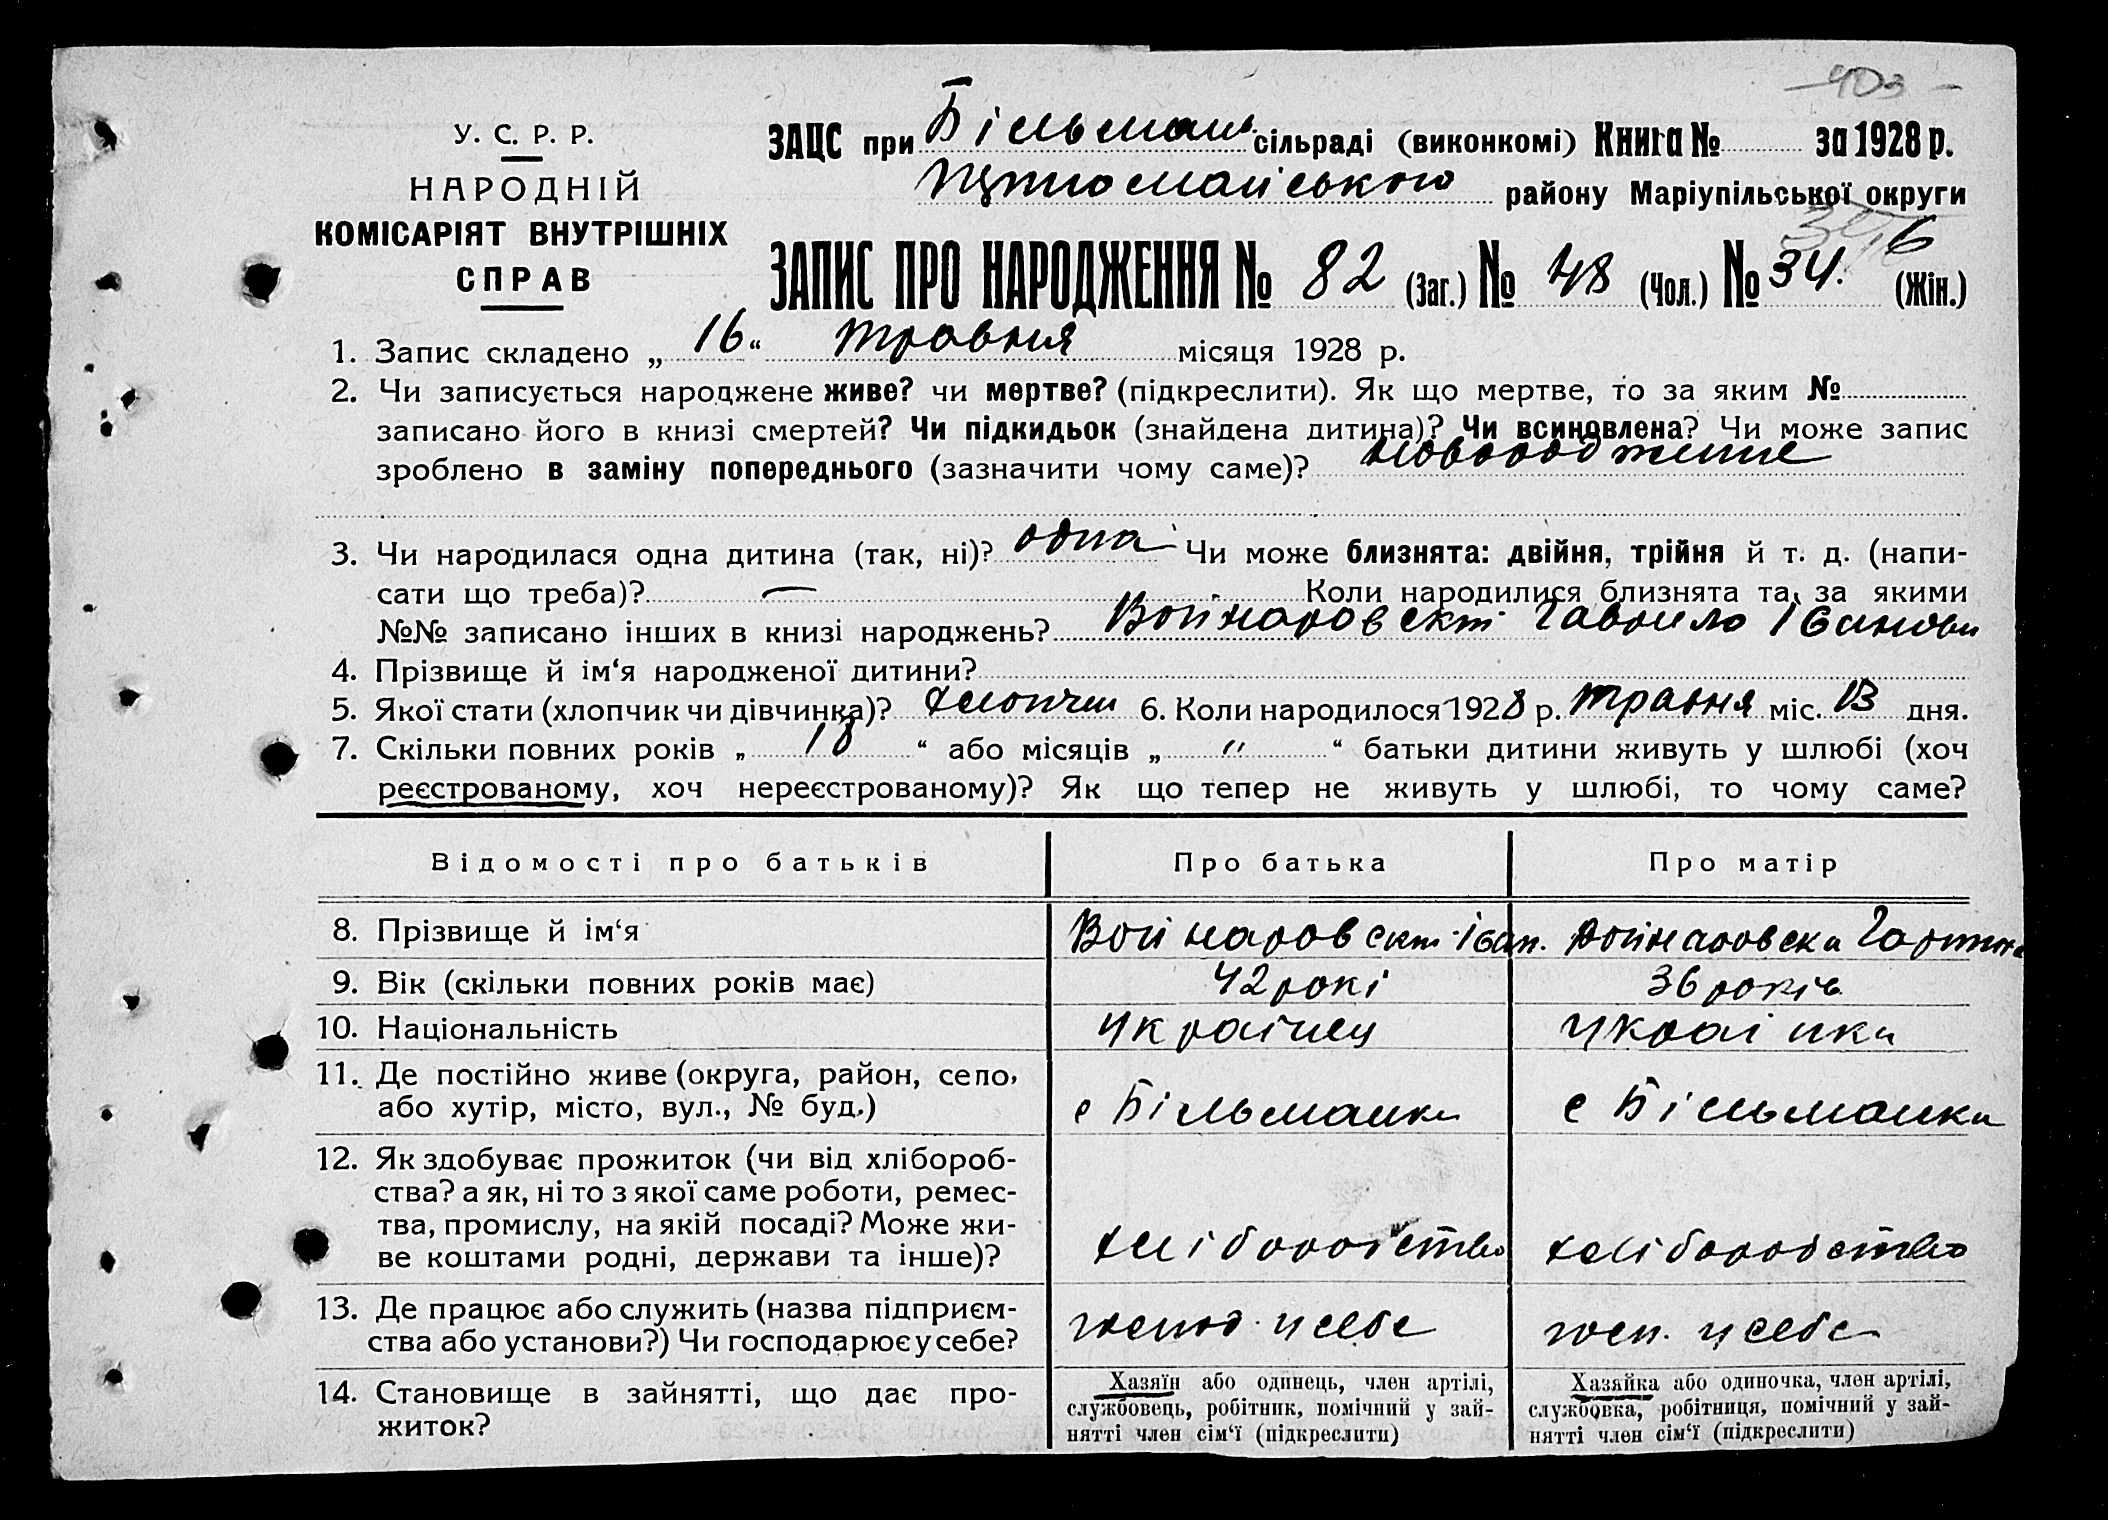 403
У. С. Р. Р.
НАРОДНІЙ
КОМІСАРІЯТ ВНУТРІШНІХ
СПРАВ
ЗАЦС при Більмань сільраді (виконкомі) Книга № за 1928 р.
району Маріупільської округи
ЗАПИС ПРО НАРОДЖЕННЯ № 82 (Заг.) № 48 (Чол.) № 34. (Жін.)
6
1. Запис складено „ 16 “ травня місяця 1928 р.
2. Чи записується народжене живе? чи мертве? (підкреслити). Як що мертве, то за яким №
записано його в книзі смертей? Чи підкидьок (знайдена дитина)? Чи всиновлена? Чи може запис
зроблено в заміну попереднього (зазначити чому саме)?
3. Чи народилася одна дитина (так, ні)? одна Чи може близнята: двійня, трійня й т. д. (напи-
сати що треба)? — Коли народилися близнята та за якими
№№ записано інших в книзі народжень? Войнаровскі Гаврило Іванови
4. Прізвище й ім‘я народженої дитини?
5. Якої стати (хлопчик чи дівчинка)? хлопчи 6. Коли народилося 1928 р. травня міс. 13 дня.
7. Скільки повних років „ 18 “ або місяців „ “ батьки дитини живуть у шлюбі (хоч
реєстрованому, хоч нереєстрованому)? Як що тепер не живуть у шлюбі, то чому саме?
Відомості про батьків Про батька Про матір
8. Прізвище й ім‘я Войнаровскі Іван. Войнаровска
9. Вік (скільки повних років має) 42 рокі 36 років
10. Національність українец українка
11. Де постійно живе (округа, район, село,
або хутір, місто, вул., № буд.) с Більманка с Більманка
12. Як здобуває прожиток (чи від хлібороб-
ства? а як, ні то з якої саме роботи, ремес-
тва, промислу, на якій посаді? Може жи-
ве коштами родні, держави та інше)? хліборобство хліборобство
13. Де працює або служить (назва підприєм-
ства або установи?) Чи господарює у себе? у себе у себе
14. Становище в зайнятті, що дає про-
житок?
Хазяїн або одинець, член артілі,
службовець, робітник, помічний у зай-
нятті член сім‘ї (підкреслити)
Хазяйка або одиночка, член артілі,
службовка, робітниця, помічний у зай-
нятті член сім‘ї (підкреслити)